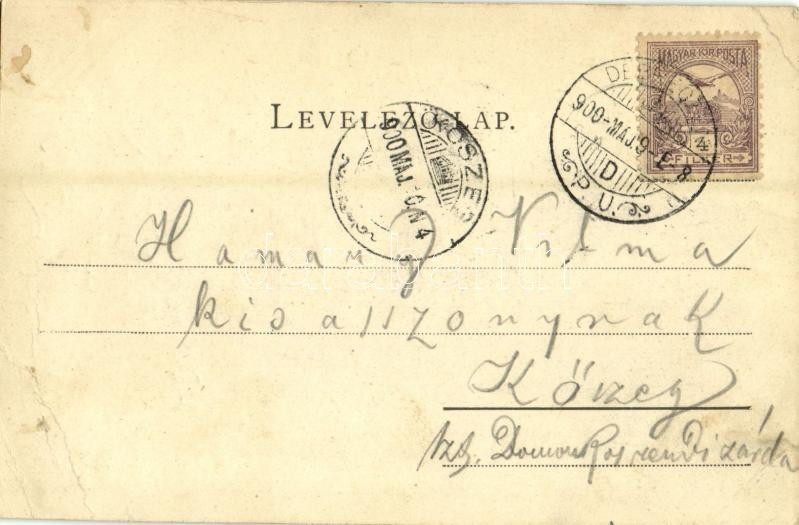 MAGYAR KIR. POSTA
4
FILLÉR
900-MÁJ.9. E-8
D
P. U.
LEVELEZŐ-LAP.
KŐSZEG
900 MÁJ. 10. N 4
Vilma
kisasszonynak
Kőszeg
Szt. Domonkos rendi zárda
darabanth